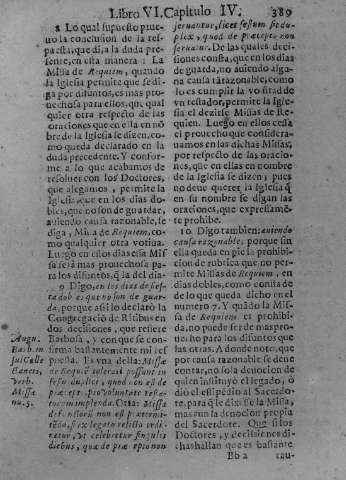 Libro VI. Capitulo IV. 389
8 Lo qual supuesto prue-
uo la conclusion de la res-
puesta, que di, a la duda pre-
sente, en esta manera: La
Missa de Requiem, quando
la Iglesia permite que se di-
ga por difuntos, es mas pro-
uechosa para ellos, que qual
quier otra respecto de las
oraciones que en ella en nõ-
bre de la Iglesia se dizen, co-
mo queda declarado en la
duda precedente. Y confor-
me a lo que acabamos de
resoluer con los Doctores,
que alegamos, permite la
Iglesia, que en los dias do-
bles, que no son de guardar,
auiendo causa razonable, se
diga, Missa de Requiem, co-
mo qualquier otra votiua.
Luego en estos dias essa Mis
sa serà mas prouechosa pa-
ra los difuntos, q̃ la del dia.
9 Digo, en los dias de fies-
ta dobles que no son de guar-
da, porque assi lo declarò la
Congregacion de Ritibus en
dos decisiones, que refiere
Barbosa, y con que se con-
firma bastantemente mi res
puesta. Es vna della: Missæ
de Requiẽ celebrari possunt in
festo duplici, quod non est de
præcepto, pro voluntate testa-
torum implenda. Otra: Missæ
defunctorũ non est prætermit-
tẽda, si ex legato relicta ordi-
netur, vt celebretur singulis
diebus, quæ de præcepto non
Augu.
Barb. in
Coll.
Missa
nu. 5.
seruantur, licet festum sit du-
plex, quod de præcepto non
seruatur. De las quales deci-
siones consta, que en los dias
de guarda, no auiendo algu-
na causa tã razonable, como
lo es cumplir la volũtad de
vn testador, permite la Igle-
sia el dezirse Missas de Re-
quien. Luego en ellos cessa
el prouecho que considera-
uamos en las dichas Missas,
por respecto de las oracio-
nes, que en ellas en nombre
de la Iglesia se dizen; pues
no deue querer la Iglesia q̃
en su nombre se digan las
oraciones, que expressamẽ-
te prohibe.
10 Digo tambien: auiendo
causa razonable: porque sin
ella queda en pie la prohibi-
cion de rubrica que no per-
mite Missas de Requiem, en
dias dobles, como consta de
lo que queda dicho en el
numero 7. Y quãdo la Mis-
sa de Requiem es prohibi-
da, no puede ser de mas pro-
uecho para los difuntos que
las otras. A donde noto, que
por causa razonable se deue
contar, no sola la deuocion de
quien instituyò el legado, ò
diò el estipedio al Sacerdo-
te, para q̃ le dixesse la Missa,
mas aun la deuocion propia
del Sacerdote. Que si los
Doctores, y decisiones di-
chas hallan que es bastante
Bb 2 cau-